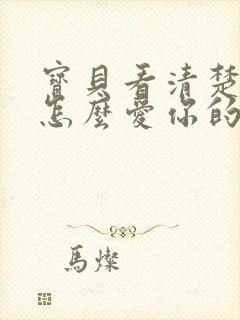 寶貝看清楚
怎麼愛你的
馬燦